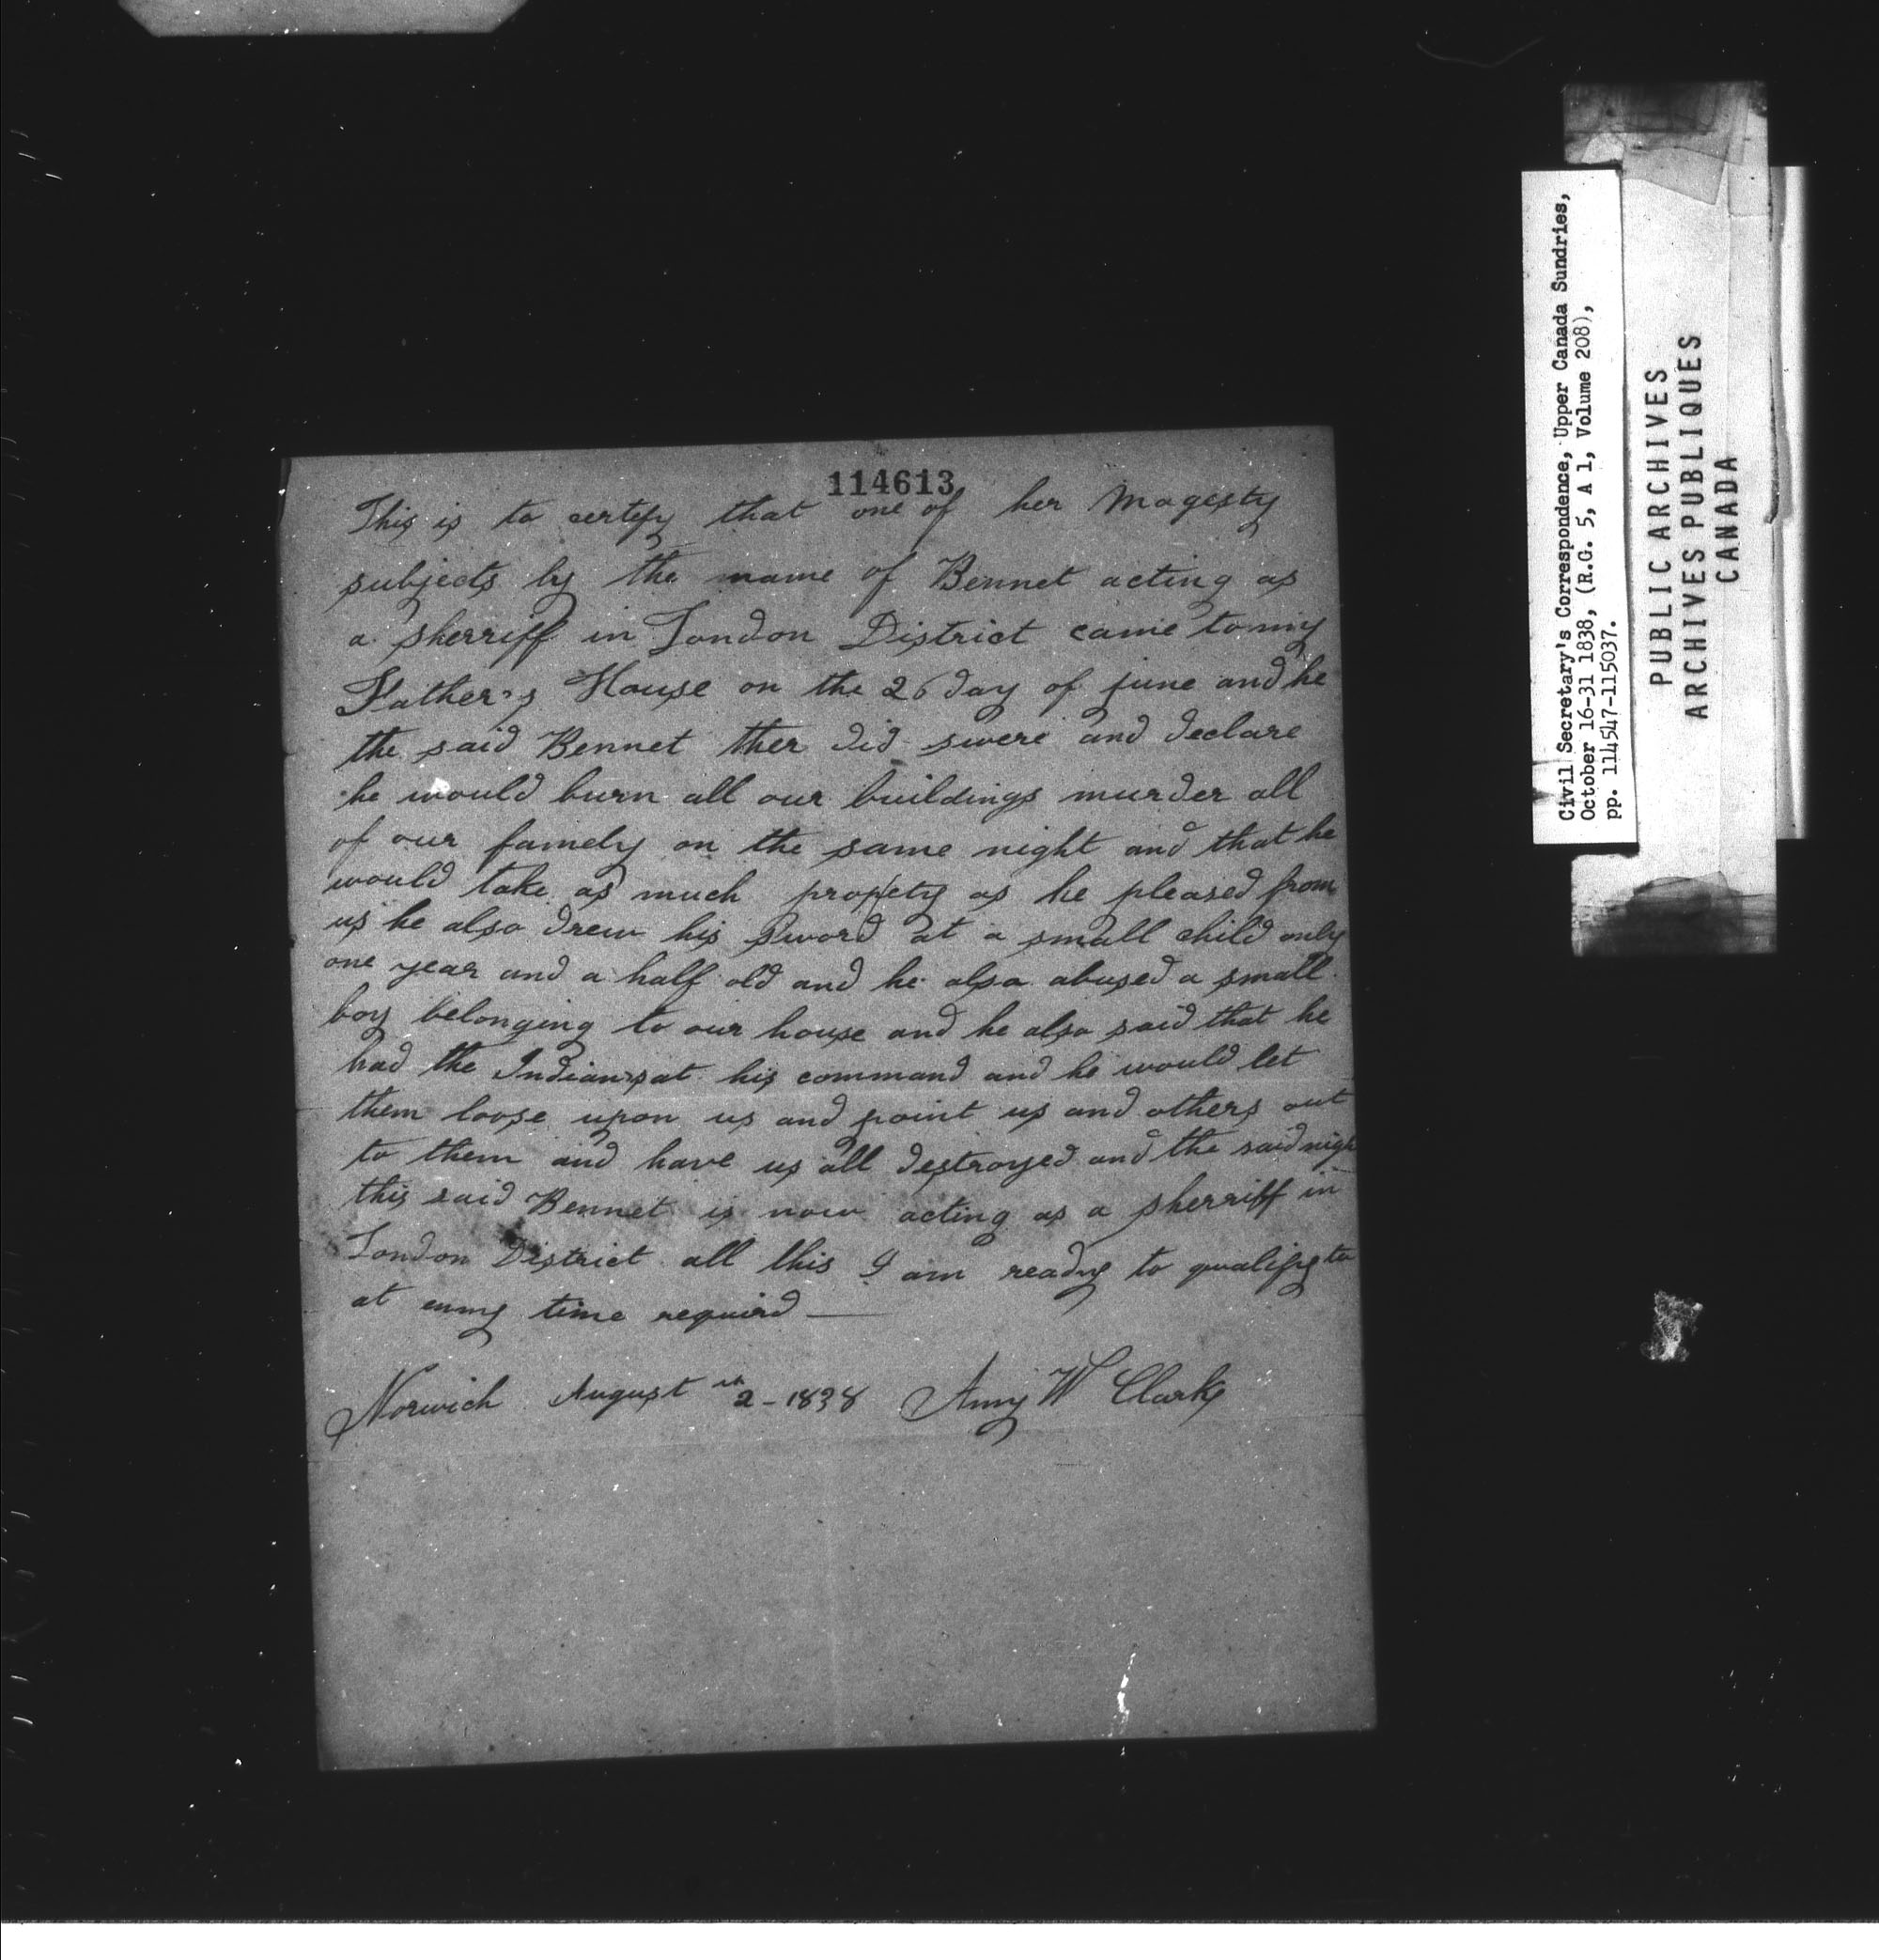 114613
This is to certify that one of her Magesty
subjects by the name of Bennet acting as
a sherriff in London District came to my
Father's House on the 26 day of june and he
the said Bennet ther did swere and declare
he would burn all our buildings murder all
of our famely on the same night and that he
would take as much propety as he pleased from
us he also drew his sword at a small child only
one year and a half old and he also abused a small
boy belonging to our house and he also said that he
had the Indians at his command and he would let
them loose upon us and point us and others out
to them and have us all destroyed and the said nigh
this said Bennet is now acting as a sherriff in
London District all this I am ready to qualify to
at enny time requird
Norwich August 2 - 1838 Amy W Clark
Civil Secretary's Correspondence, Upper Canada Sundries,
October 16-31 1838, (R.G. 5, A 1, Volume 208),
pp. 114547-115037.
PUBLIC ARCHIVES
ARCHIVES PUBLIQUES
CANADA